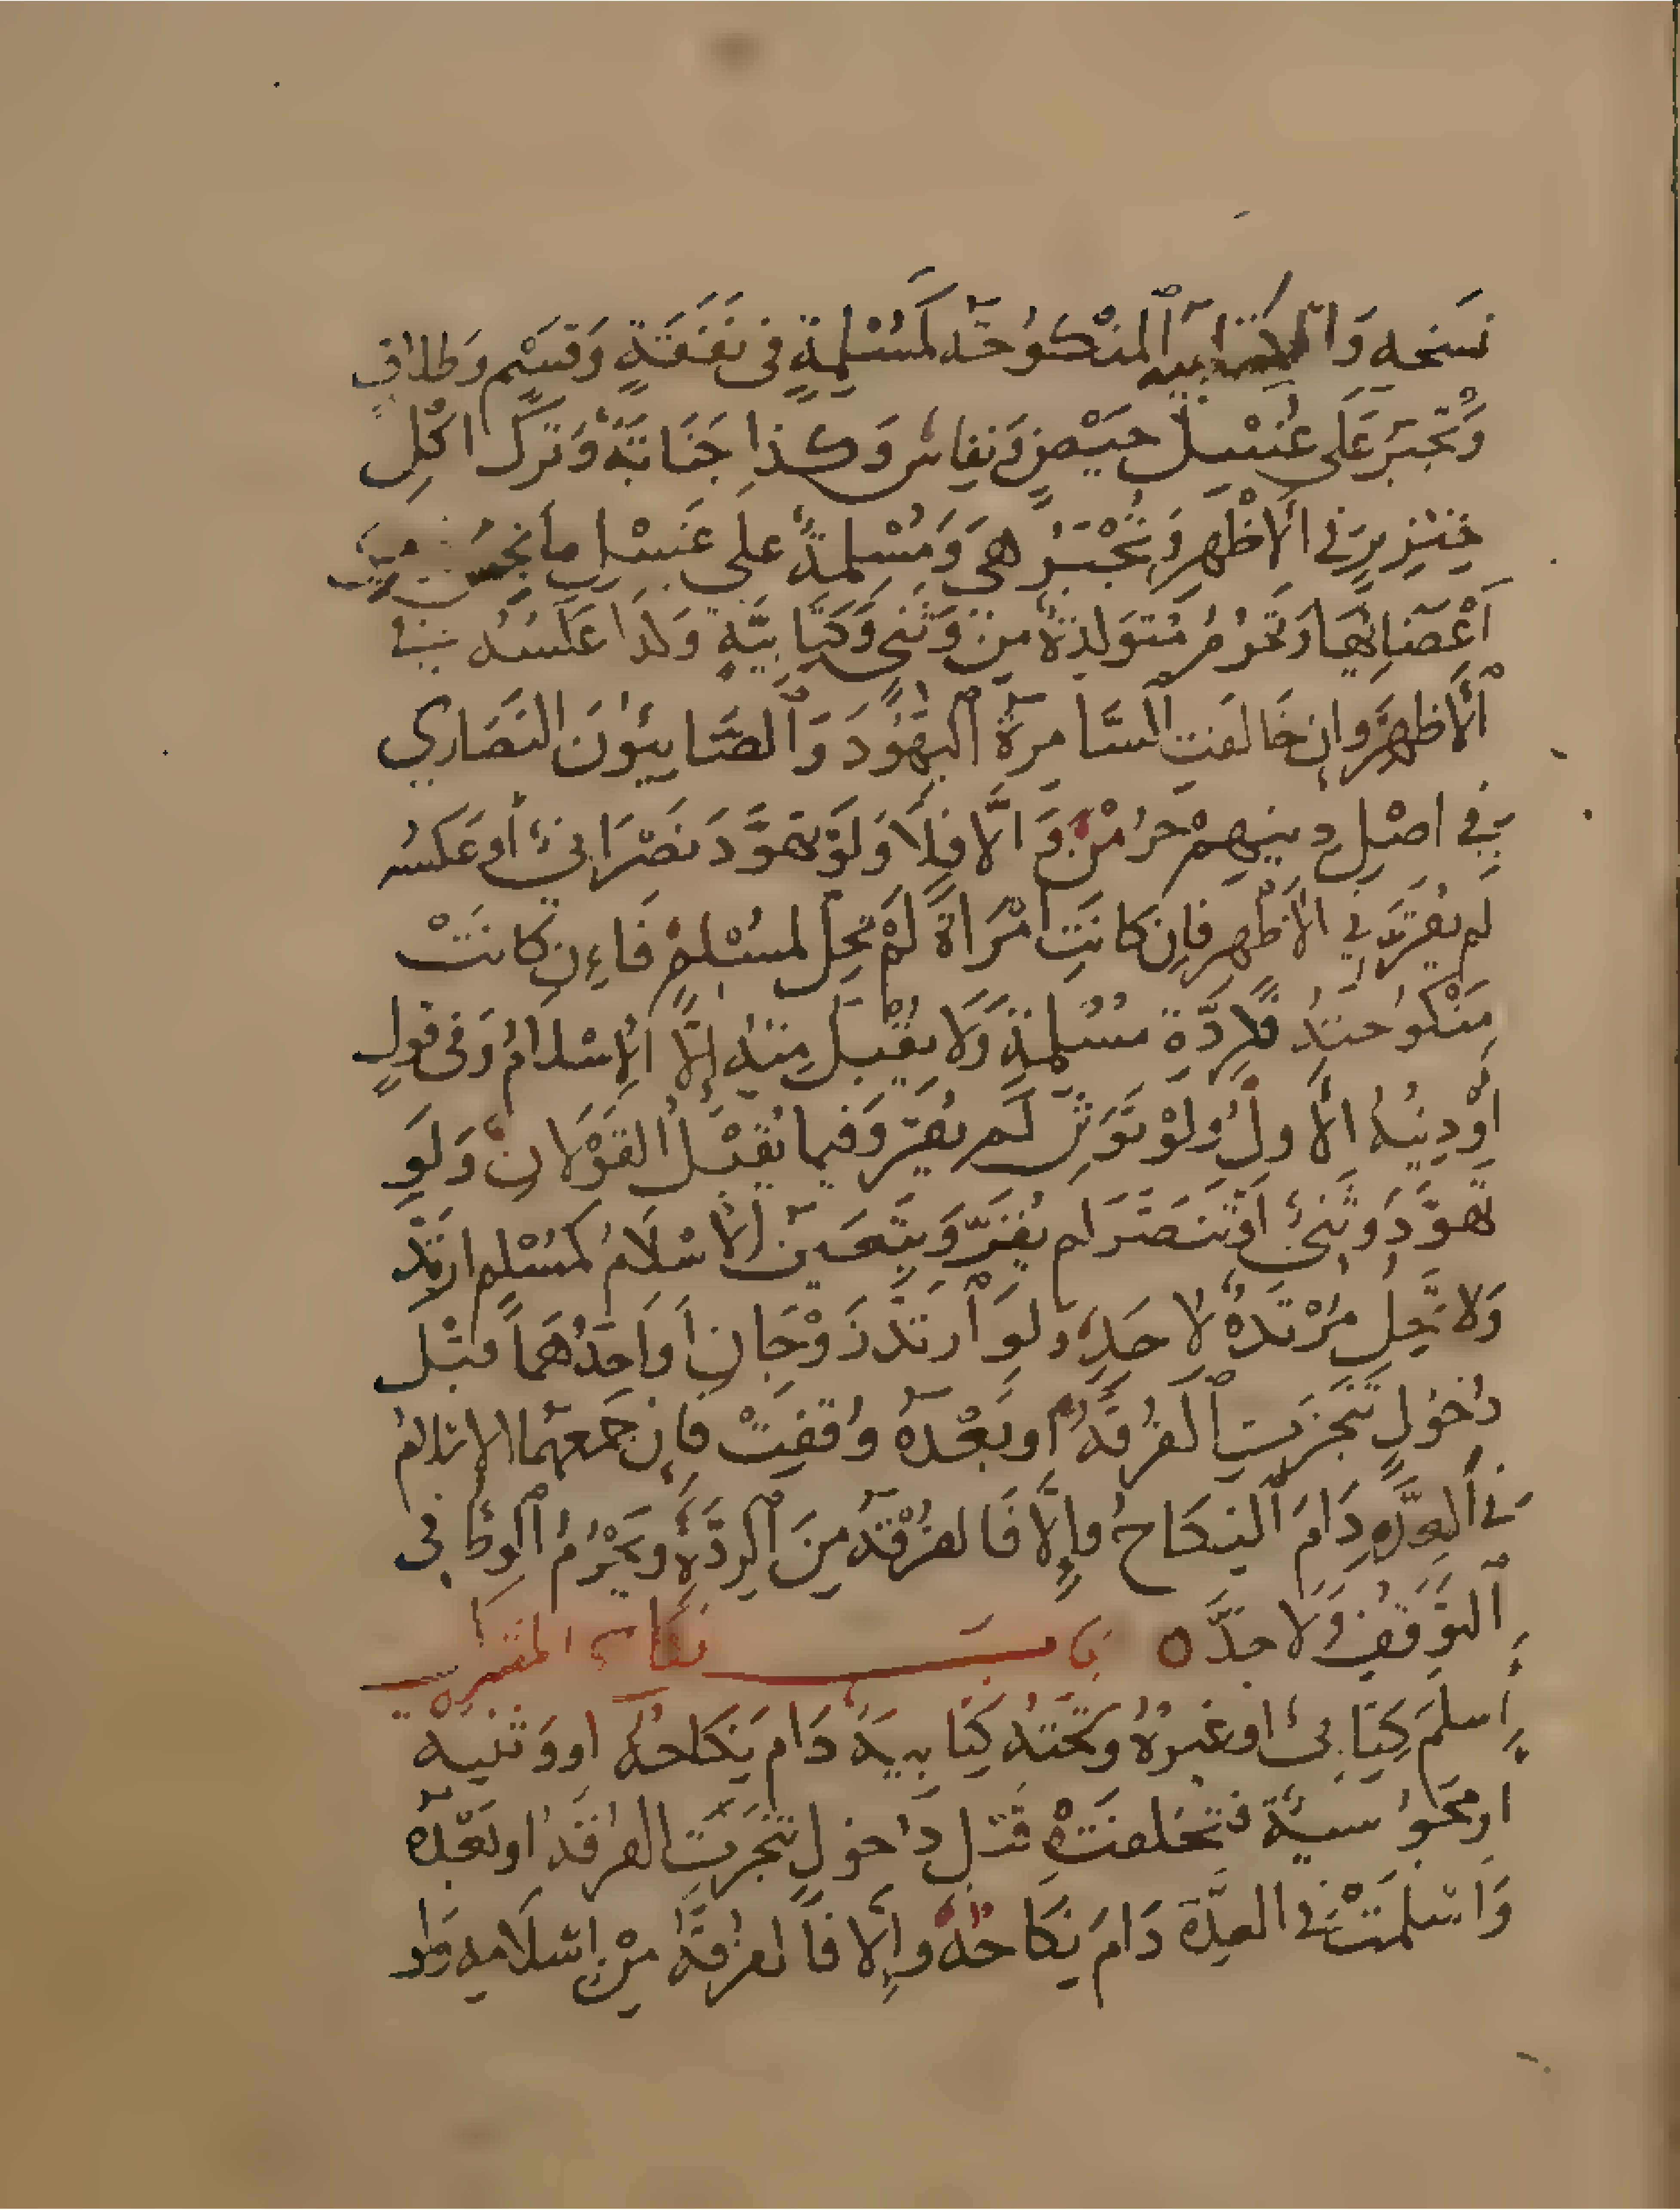 نسخه وَالكتابيه ٱلمنْكوُحَة كَمُسْلِمةٍ فى نفقَةٍ وَقسْمٍ وَطلاقٍ
وَتُجْبَرُ عَلَى غُسْلِ حيْضٍ وَنِفاسٍ وَكذا جَنَابَةٌ وَتَرْك اكْلِ
خِنزِيرٍ في الاظْهرِ وَتُجْبَرُ هى وَمُسْلِمةٌ على غَسْلِ ما نجسَ مِن
أعْضَائِهَا وَتحْرُمُ مُتَولِدةٌ من وَثَني وَكِتَابِيَّةٍ وَكذَا عَكسُه في
ٱلاظهَر وان خَالفت السَّامِرةُ ٱليَهُودَ وَٱلصَّابِئوُنَ النَّصَارى
في اصْلِ دينهِمْ حَرُمْنَ وَالَّا فَلَا وَلَوْ تهَوَّدَ نَصْرَانيٌّ أو عَكسُه
لم يقرَّ في الأظْهرِ فإن كانَتِ امْرَاةً لَمْ تحِلَّ لمُسْلمٍ فَاءِن كانَتْ
مَنْكوُحَتَهُ فكرِدَّةِ مُسْلِمةٍ وَلَا يُقْبَل مِنهُ إلَّا الإسْلامُ وَفى قولٍ
اوْ دِينُهُ الأولُ وَلوْ توَثنَ لَم يُقَرّ وَفيما يُقْبَلُ القَوْلَانِ وَلَو
تَهوَّدَ وَثَنِيٌ اوْ تَنَصَّرَ لم يُقرَّ وَيتَعَين الإسْلَامُ كمُسْلِمٍ ارتَدَّ
وَلا تَحِلُ مُرْتدةٌ لاحَدٍ وَلَوِ ٱرتَدَّ زَوْجَانِ أَوَاحَدُهُمَا قبْل
دُخوُلٍ تنَجزَتِ ٱلفُرقَةُ اوبَعْدهُ وُقفِتْ فَإن جَمعهُما الاسلامُ
في ٱلعِدَّةِ دَامَ ٱلنِكَاحُ وإلَّا فَالفُرْقَةُ مِنَ ٱلرِدَّةِ وَيَحْرُمُ ٱلوطا فى
ٱلتوَقفِ وَلَا حدَّ ه بَابُ نكَاحِ المشرك
أسلَمَ كِتَابىٌ اوغيرُهُ وَتحْتَهُ كِتَابِيَةٌ دَام نِكَاحهُ اووَثنيهٌ
اومجوُسيةٌ فتخلفتْ قبْل دُخولٍ تنَجزَتِ الفرُقَةُ اوبَعْدهُ
وَاسْلمَتْ في العِدَّةِ دَامَ نِكَاحُهُ وإلَّا فَالفرُقةُ مِنْ إسْلَامِه وَلو